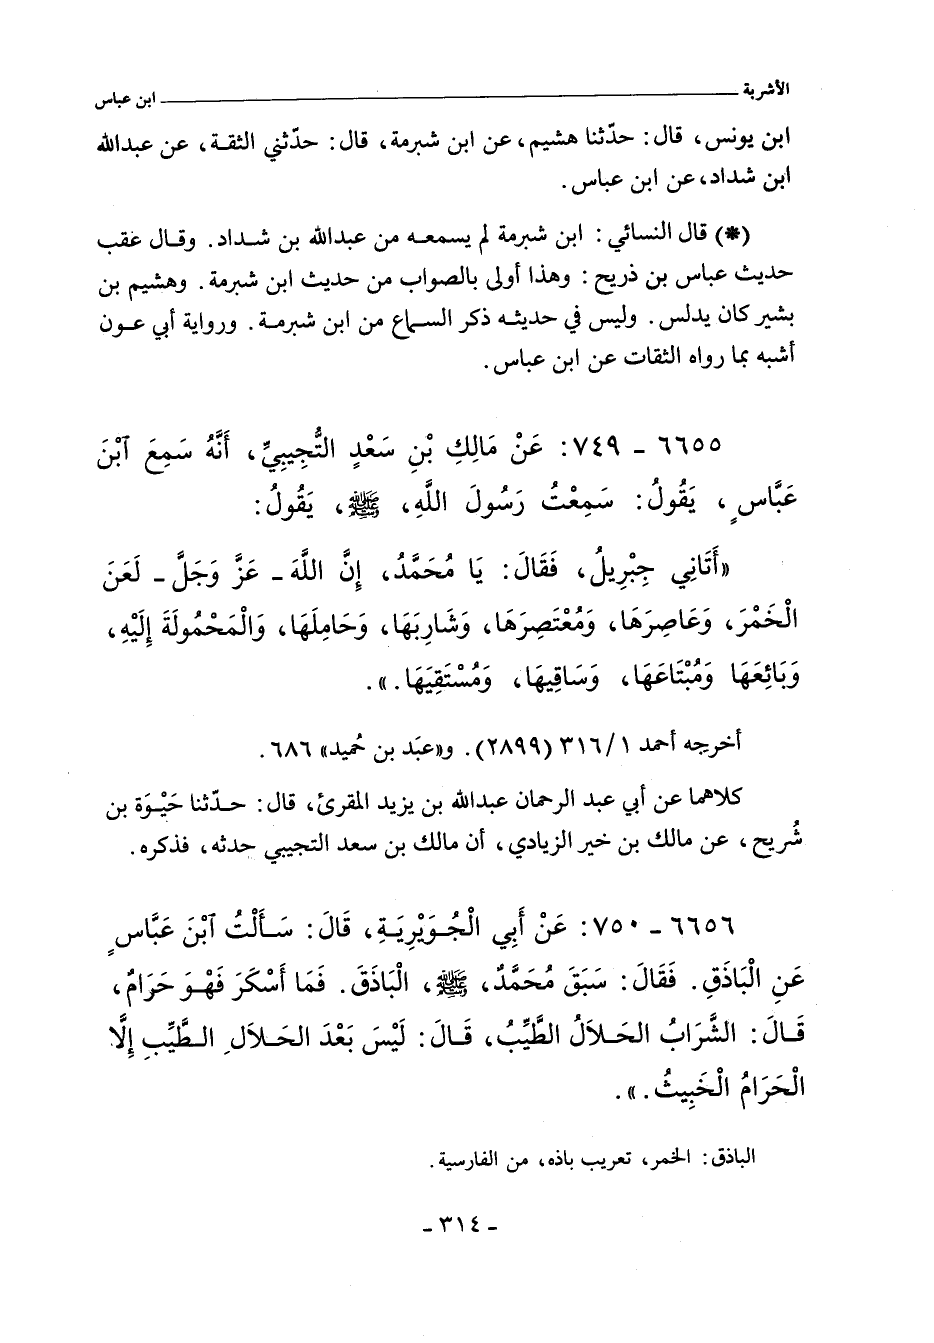 الأشربة ــــــ ابن عباس
ابن يونس، قال: حدّثنا هشيم، عن ابن شبرمة، قال: حدّثني الثقة، عن عبدالله
ابن شداد، عن ابن عباس.
(*) قال النسائي: ابن شبرمة لم يسمعه من عبدالله بن شداد. وقال عقب
حديث عباس بن ذريح: وهذا أولى بالصواب من حديث ابن شبرمة. وهشيم بن
بشير كان يدلس. وليس في حديثه ذكر السماع من ابن شبرمة. ورواية أبي عون
أشبه بما رواه الثقات عن ابن عباس.
٦٦٥٥ - ٧٤٩: عَنْ مَالِكِ بْنِ سَعْدٍ التُّجِيبِيِّ، أَنَّهُ سَمِعَ ٱبْنَ
عَبَّاسٍ، يَقُولُ: سَمِعْتُ رَسُولَ اللَّهِ، ﷺ، يَقُولُ:
«أَتَانِي جِبْرِيلُ، فَقَالَ: يَا مُحَمَّدُ، إِنَّ اللَّهَ - عَزَّ وَجَلَّ - لَعَنَ
الْخَمْرَ، وَعَاصِرَهَا، وَمُعْتَصِرَهَا، وَشَارِبَهَا، وَحَامِلَهَا، وَالْمَحْمُولَةَ إِلَيْهِ،
وَبَائِعَهَا وَمُبْتَاعَهَا، وَسَاقِيهَا، وَمُسْتَقِيَهَا.».
أخرجه أحمد ٣١٦/١ (٢٨٩٩). و«عبَد بن حُميد» ٦٨٦.
كلاهما عن أبي عبد الرحمان عبدالله بن يزيد المقرئ، قال: حدّثنا حَيْوَة بن
شُريح، عن مالك بن خير الزيادي، أن مالك بن سعد التجيبي حدثه، فذكره.
٦٦٥٦ - ٧٥٠: عَنْ أَبِي الْجُوَيْرِيَةِ، قَالَ: سَأَلْتُ ٱبْنَ عَبَّاسٍ
عَنِ الْبَاذَقِ. فَقَالَ: سَبَقَ مُحَمَّدٌ، ﷺ، الْبَاذَقَ. فَمَا أَسْكَرَ فَهْوَ حَرَامٌ،
قَالَ: الشَّرَابُ الحَلاَلُ الطَّيِّبُ، قَالَ: لَيْسَ بَعْدَ الحَلاَلِ الطَّيِّبِ إِلَّا
الْحَرَامُ الْخَبِيثُ.».
الباذق: الخمر، تعريب باذه، من الفارسية.
- ٣١٤ -